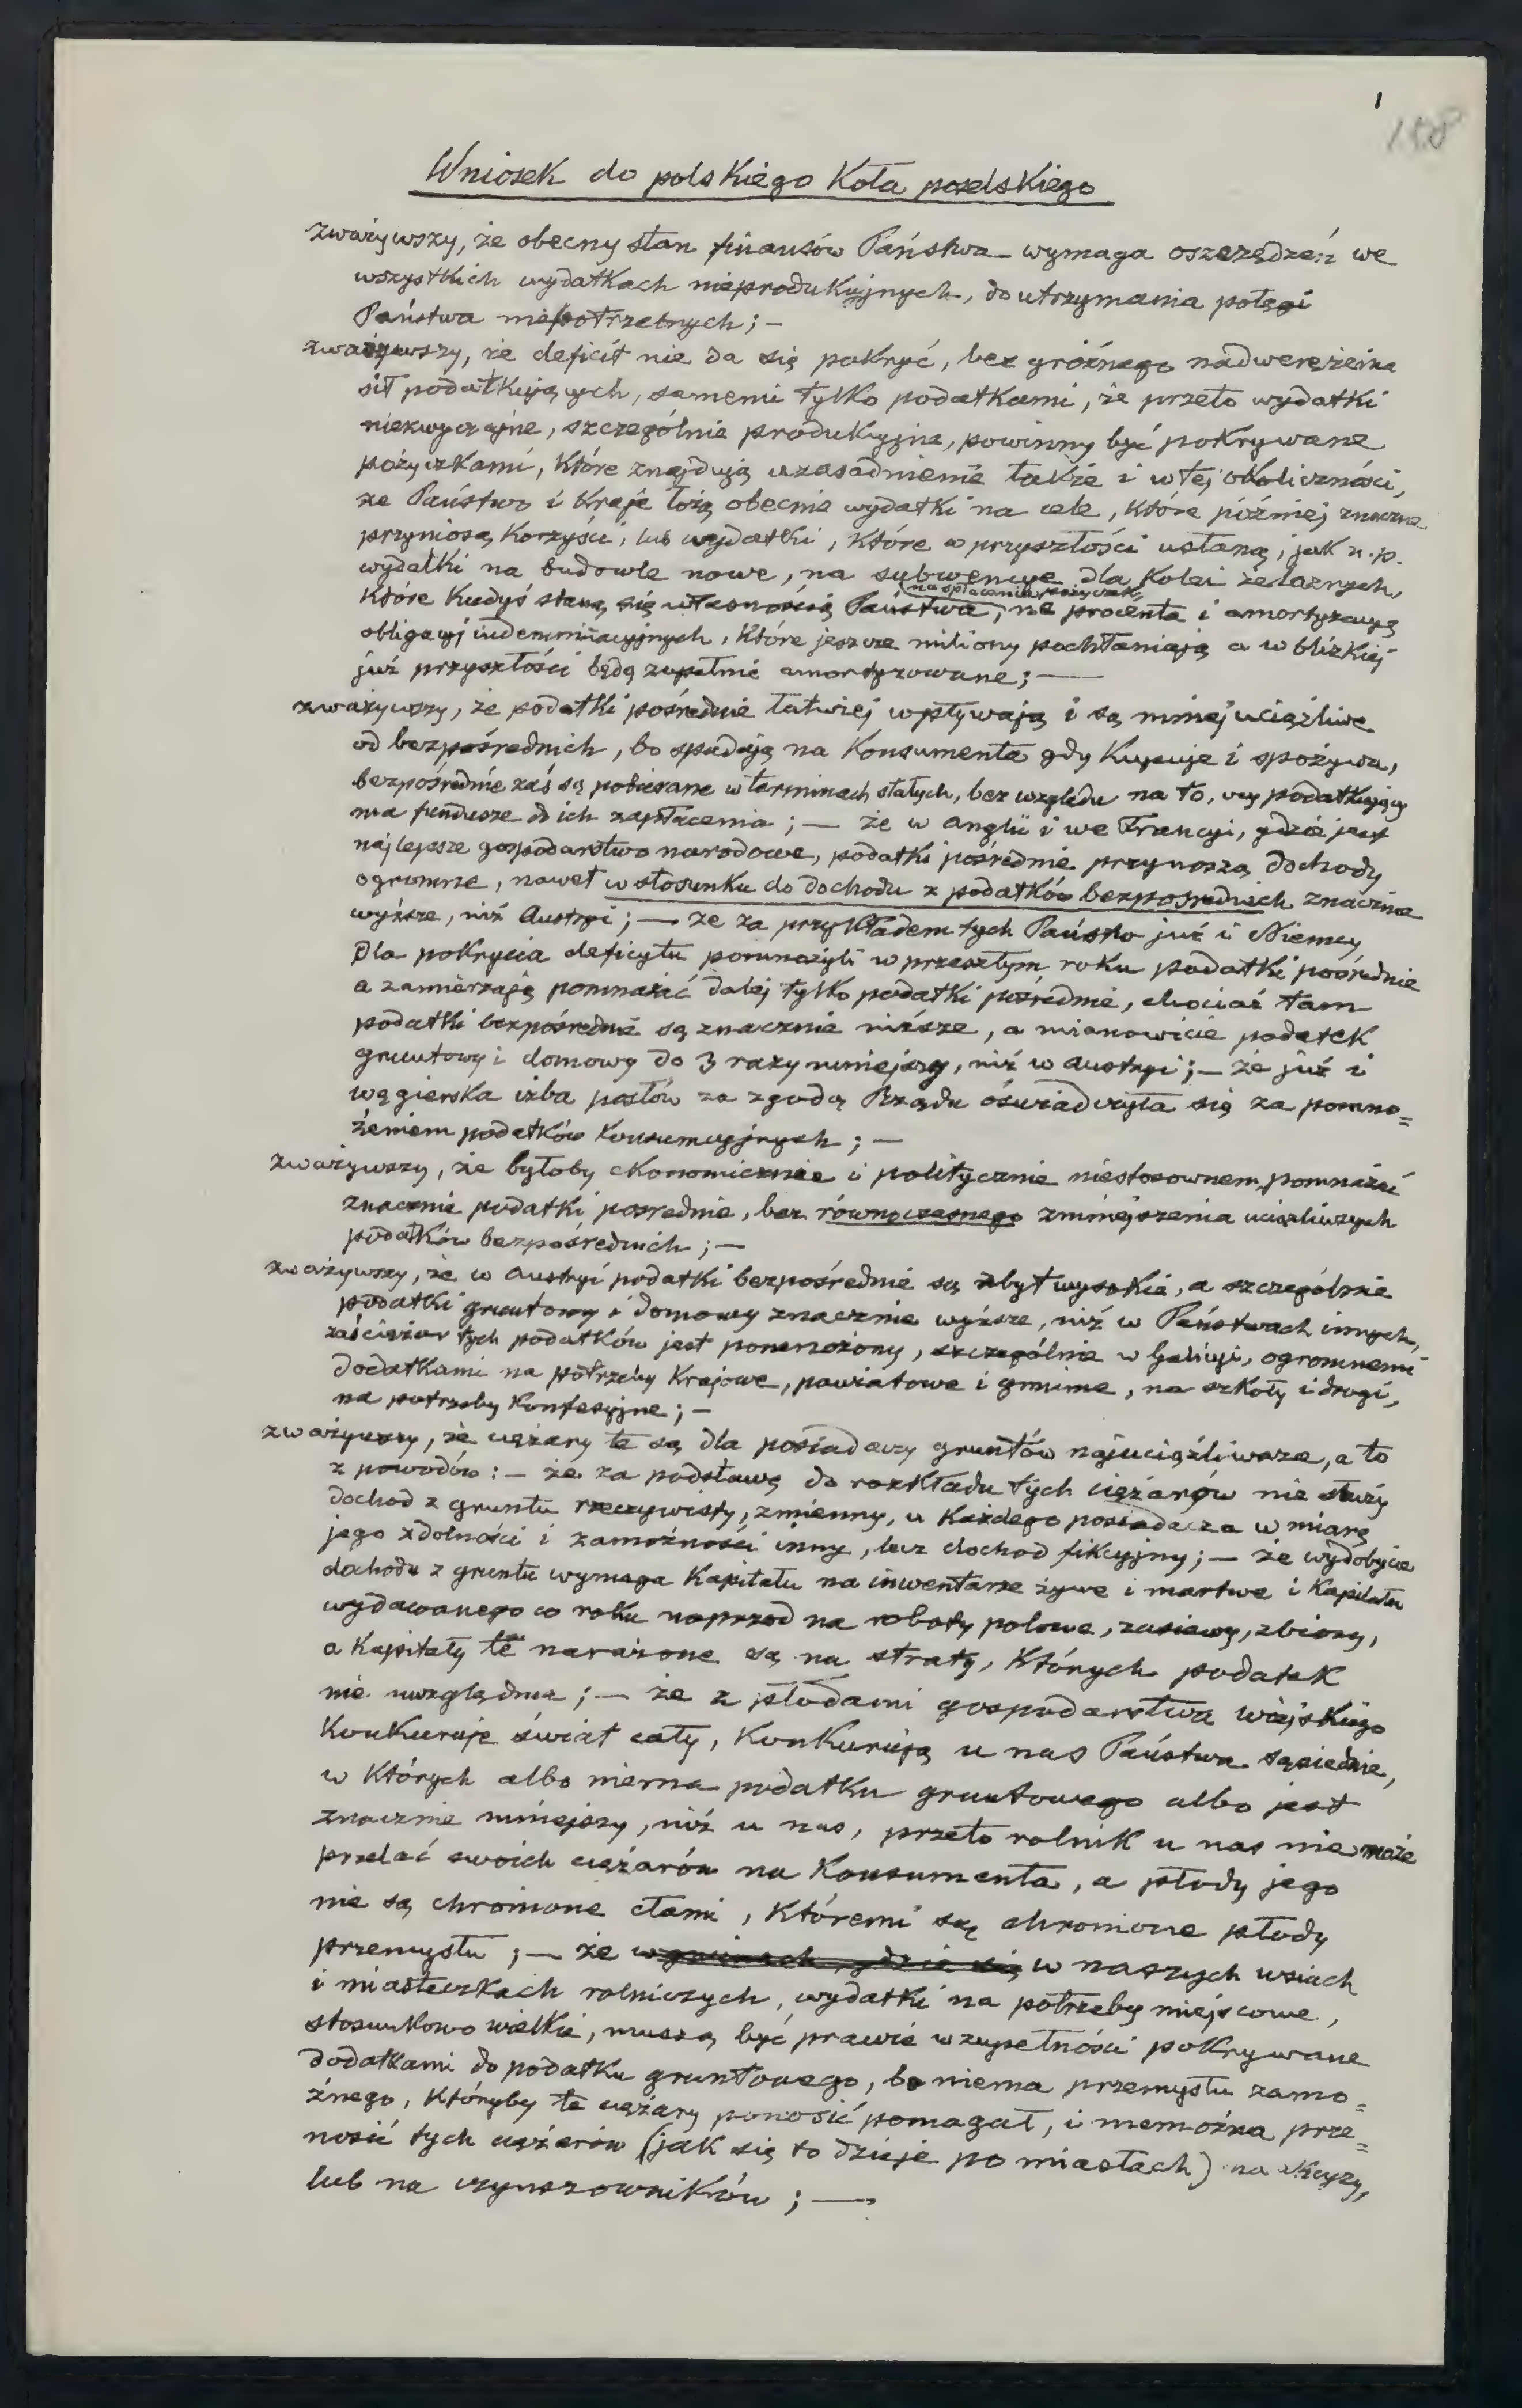 1
188
Wniosek do polskiego Koła poselskiego
zważywszy, że obecny stan finansów Państwa wymaga oszczędzeń we
wszystkich wydatkach nieprodukcyjnych, do utrzymania potęgi
Państwa niepotrzebnych; —
zważywszy, że deficit nie da się pokryć, bez groźnego nadwerężenia
sił podatkujących, samemi tylko podatkami, że przeto wydatki
niezwyczajne, szczególnie produkcyjne, powinny być pokrywane
pożyczkami, które znajdują uzasadnienie także i w tej okoliczności,
że Państwo i Kraje łożą obecnie wydatki na cele, które później znaczne
przyniosą korzyści, lub wydatki, które w przyszłości ustaną, jak n.p.
wydatki na budowle nowe, na subwencye dla Kolei żelaznych,
na spłacanie pożyczek,
które kiedyś staną się własnością Państwa, na procenta i amortyzacyą
obligacyj indemnizacyjnych, które jeszcze miliony pochłaniają a w blizkiej
już przyszłości będą zupełnie amortyzowane; —
zważywszy, że podatki pośrednie łatwiej wpływają i są mniej uciążliwe
od bezpośrednich, bo spadają na Konsumenta gdy Kupuje i spożywa,
bezpośrednie zaś są pobierane w terminach stałych, bez względu na to, czy podatkujący
ma fundusze do ich zapłacenia; — że w Anglii i we Francyi, gdzie jest
najlepsze gospodarstwo narodowe, podatki pośrednie przynoszą dochody
ogromne, nawet w stosunku do dochodu z podatków bezpośrednich znacznie
wyższe, niż Austryi; — że za przykładem tych Państw już i Niemcy
dla pokrycia deficytu pomnożyli w przeszłym roku podatki pośrednie
a zamierzają pomnażać dalej tylko podatki pośrednie, chociaż tam
podatki bezpośrednie są znacznie niższe, a mianowicie podatek
gruntowy i domowy do 3 razy mniejszy, niż w Austryi; — że już i
węgierska izba posłów za zgodą Rządu oświadczyła się za pomno=
żeniem podatków konsumcyjnych; —
zważywszy, że byłoby ekonomicznie i politycznie niestosownem, pomnażać
znacznie podatki pośrednie, bez równoczesnego zmniejszenia uciążliwszych
podatków bezpośrednich; —
zważywszy, że w Austryi podatki bezpośrednie są zbyt wysokie, a szczególnie
podatki gruntowy i domowy znacznie wyższe, niż w Państwach innych,
zaś ciężar tych podatków jest pomnożony, szczególnie w Galicyi, ogromnemi
dodatkami na potrzeby Krajowe, powiatowe i gminne, na szkoły i drogi,
na potrzeby Konfesyjne; —
zważywszy, że ciężary te są dla posiadaczy gruntów najuciążliwsze, a to
z powodów: — że za podstawę do rozkładu tych ciężarów nie służy
dochod z gruntu rzeczywisty, zmienny, u Każdego posiadacza w miarę
jego zdolności i zamożności inny, lecz dochod fikcyjny; — że wydobycie
dochodu z gruntu wymaga Kapitału na inwentarze żywe i martwe i Kapitału
wydawanego co roku naprzod na roboty polowe, zasiewy, zbiory,
a Kapitały te narażone są na straty, Których podatek
nie uwzględnia; — że z płodami gospodarstwa wiejskiego
Konkuruje świat cały, Konkurują u nas Państwa sąsiednie,
w Których albo niema podatku gruntowego albo jest
znacznie mniejszy, niż u nas, przeto rolnik u nas nie może
przelać swoich ciężarów na Konsumenta, a płody jego
nie są chronione cłami, Któremi są chronione płody
przemysłu; — że w gminach, gdzie się w naszych wsiach
i miasteczkach rolniczych, wydatki na potrzeby miejscowe,
stosunkowo wielkie, muszą być prawie w zupełności pokrywane
dodatkami do podatku gruntowego, bo niema przemysłu zamo=
żnego, Któryby te ciężary ponosić pomagał, i niemożna prze=
nosić tych ciężarów (jak się to dzieje po miastach) na akcyzy,
lub na czynszowników; —